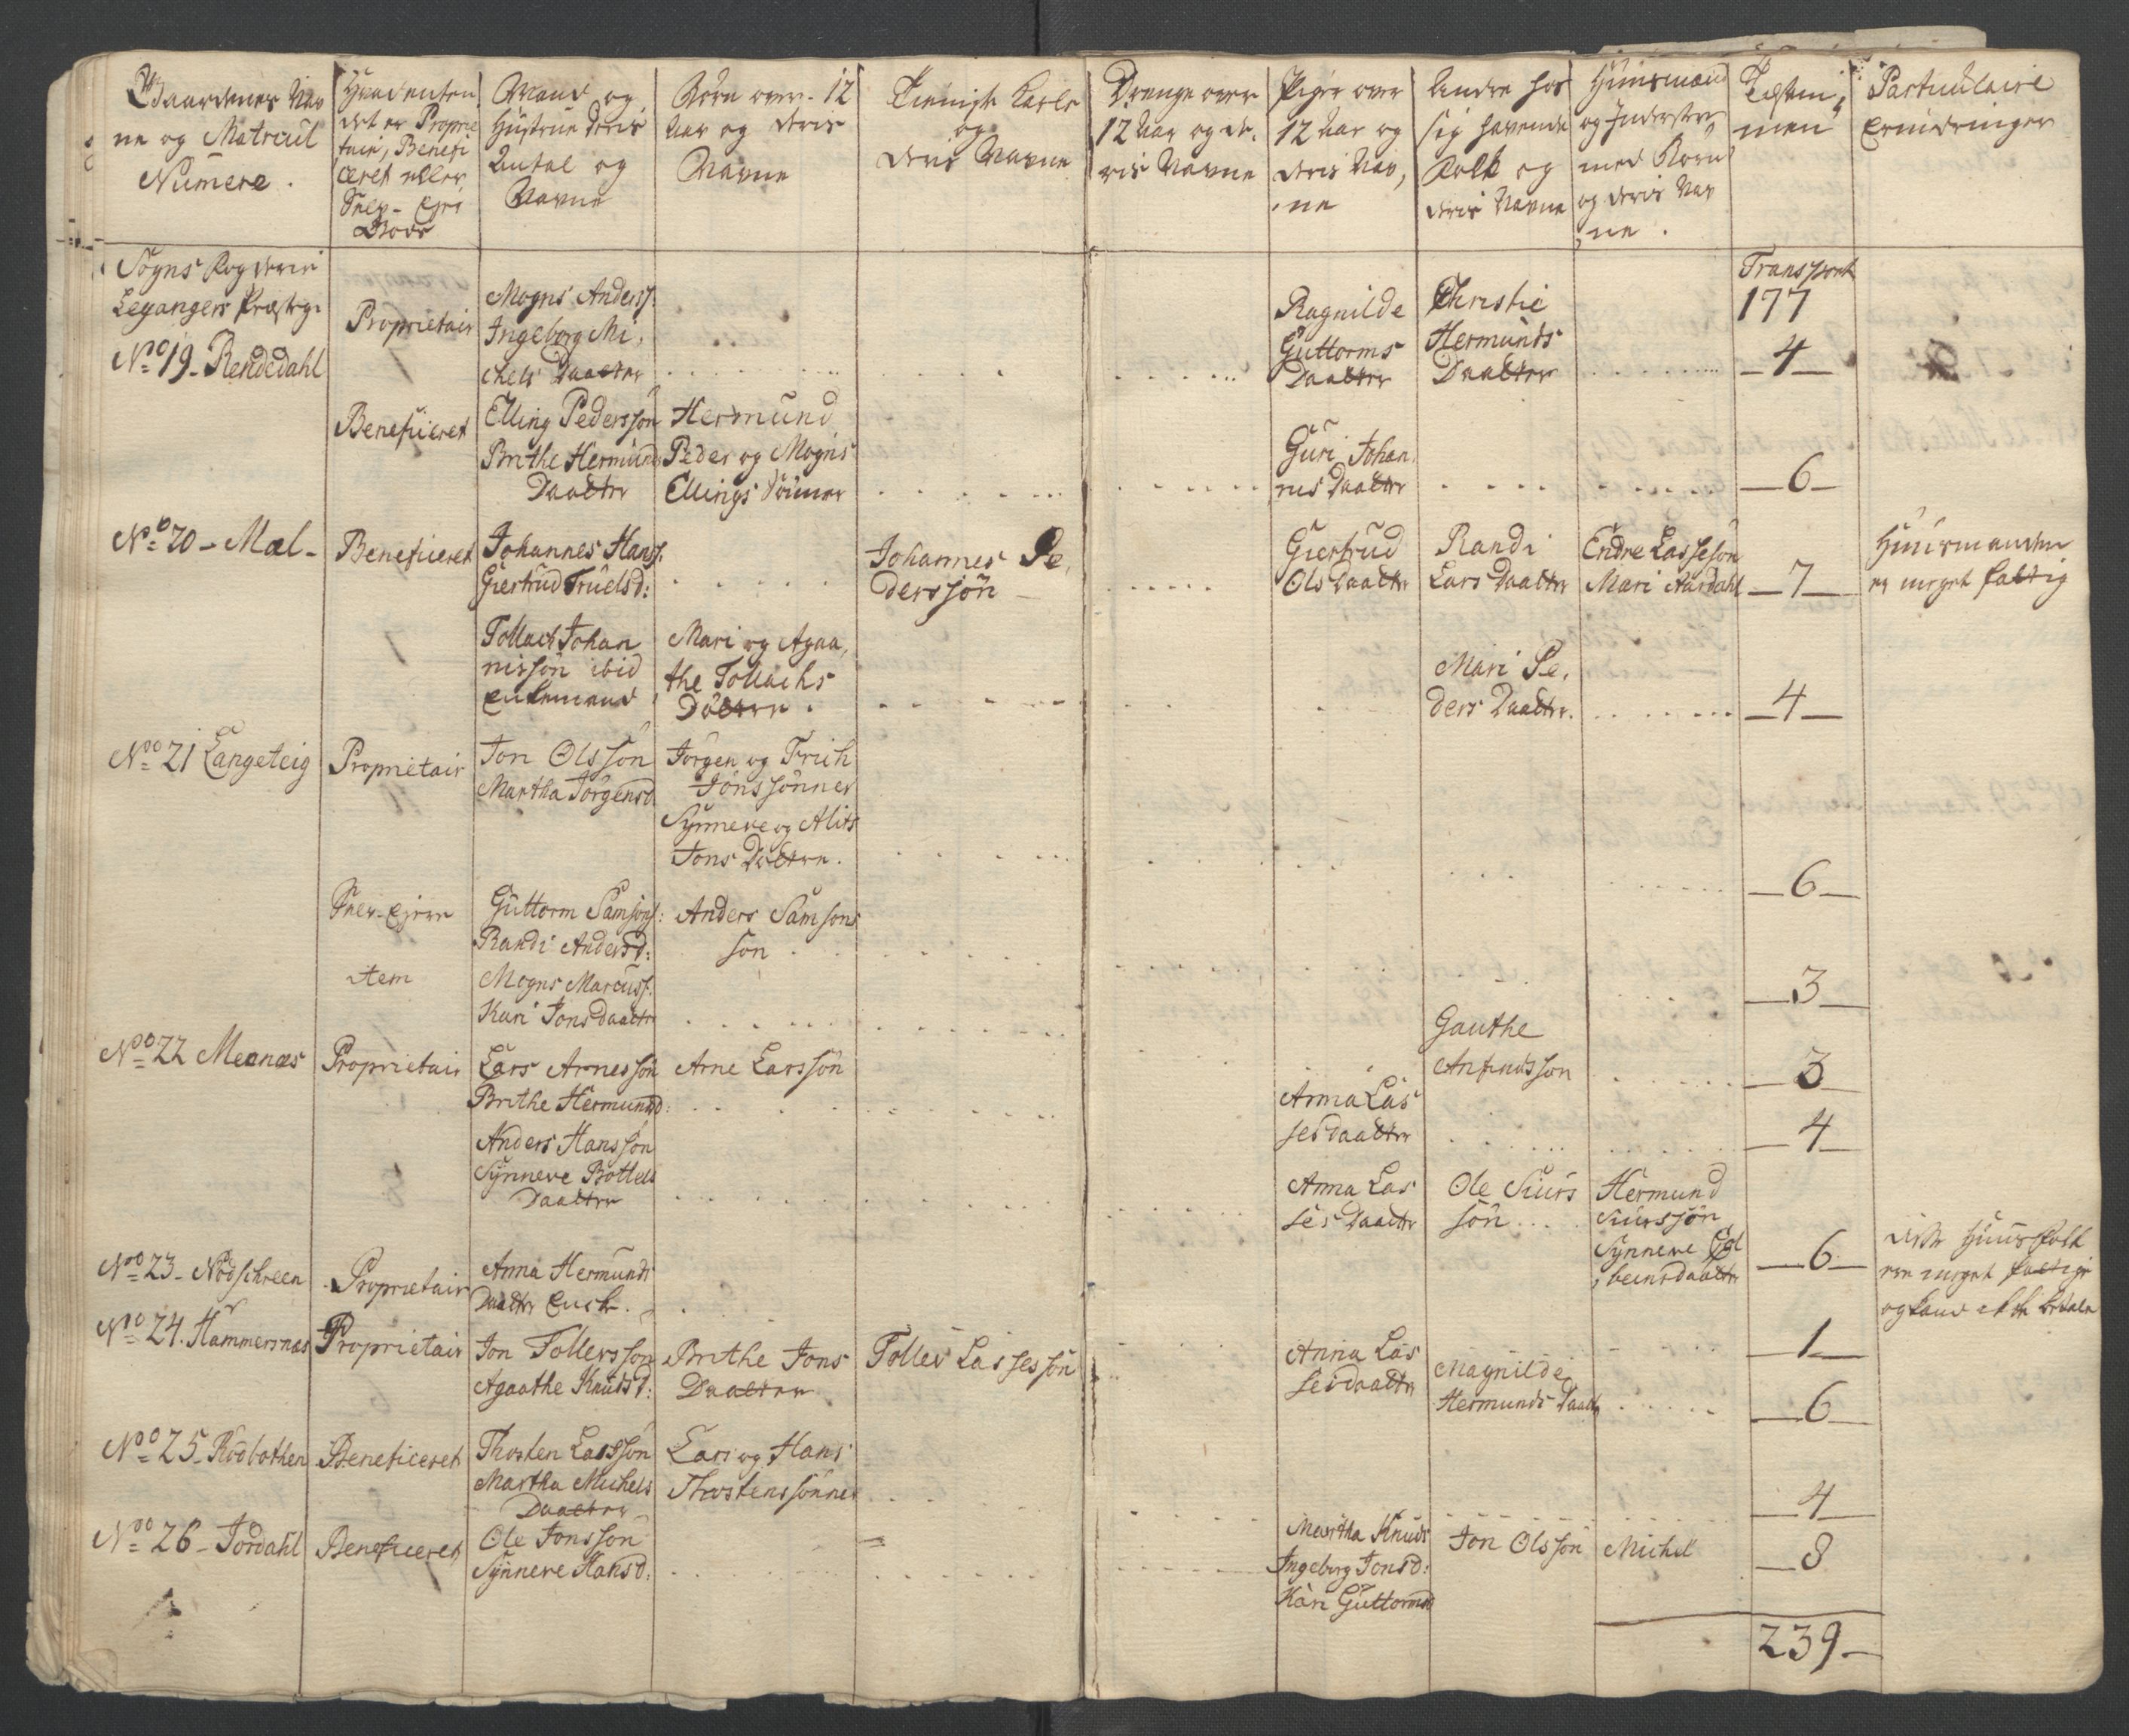 Gaardenes Nav
ne og Matricul
Numere.
Hvad enten
det er Proprie
tair, Benefi
ceret eller
Frels-Ejer
Mand og
Hustrue deris
Antal og
Navne
Børn over 12
Aar og deris
Navne
Tieniste Karle
og
deris Navne
Drenge over
12 Aar og de-
ris Navne
Piger over
12 Aar og
deris Nav,
ne
Andre hos
sig havende
Folk og
deris Navne
Huusmænd
og Inderster
med Børn
og deris Nav
ne.
men
Particulaire
Erindringer
Sogns
Leganger Præstegi
Transport
177
No 19. Rendedahl
Proprietair
Mogns Anderss.
Ingeborg Mi,
chels Daatter
Ragnilde
Guttorms
Daatter
Christie
Hermunds
Daatter
4
Beneficeret
Elling Pedersson
Brithe Hermunds
Daatter
Hermund
Peder og Mogns
Ellings Sønner
Guri Johan
nes Daatter
6
No 20 - Mæl -
Beneficeret
Johannes Hanss.
Giertrud Truelsd:
Johannes Pe,
derssøn
Giertrud
Ols Daatter
Randi
Lars Daatter
Endre Lassesøn
Mari Aardahl
7
Huusmanden
er meget fattig
Tollach Johan
nissøn ibid
Enkemand
Mari og Agaa,
the Tollachs
Døttre.
Mari Pe,
ders Daatter.
4
No 21 Langeteig
Proprietair
Jon Olssøn
Martha Jørgensd
Jørgen og Frich
Jonssønner
Synneve og Alits
Jons Døttre.
6
Frels-Ejere
Guttorm Samsons:
Randi Andersd:
Anders Samsons
søn
3
item
Mogns Marcuss.
Kari Jonsdaatter
Gauthe
Anfindssøn
3
No 22 Meenæs
Proprietair
Lars Arnessøn
Brithe Hermundd:
Arne Larssøn
Anna Las
sesdaatter
4
Anders Hanssøn
Synneve Bottels
Daatter
Anna Las
ses Daatter
Ole Siurs
søn
Hermund
Siurssøn
Synneve
beensdaatter
6
disse Huusfolk
ere meget fattige
og kand ikke betale
No 23 - Nødschreen
Proprietair
Anna Hermunds
Daatter Enke.
1
No 24. Hammersnæs
Proprietair
Jon Tollerssøn
Agaathe Knudsd:
Brithe Jons
Daatter
Tolles Lassessøn
Anna Las
sesdaatter
Magnilde
Hermunds Daatter
6
No 25 - Rødbothen
Beneficeret
Thosten Lassøn
Martha Michels
Daatter
Lars og Hans
Thostenssønner
4
No 26 - Jordahl
Beneficeret
Ole Jonssøn
Synneve Hansd:
Martha Knuds
Ingeborg Jonsd:
Kari Guttormsd
Jon Olssøn
Michel
8
239